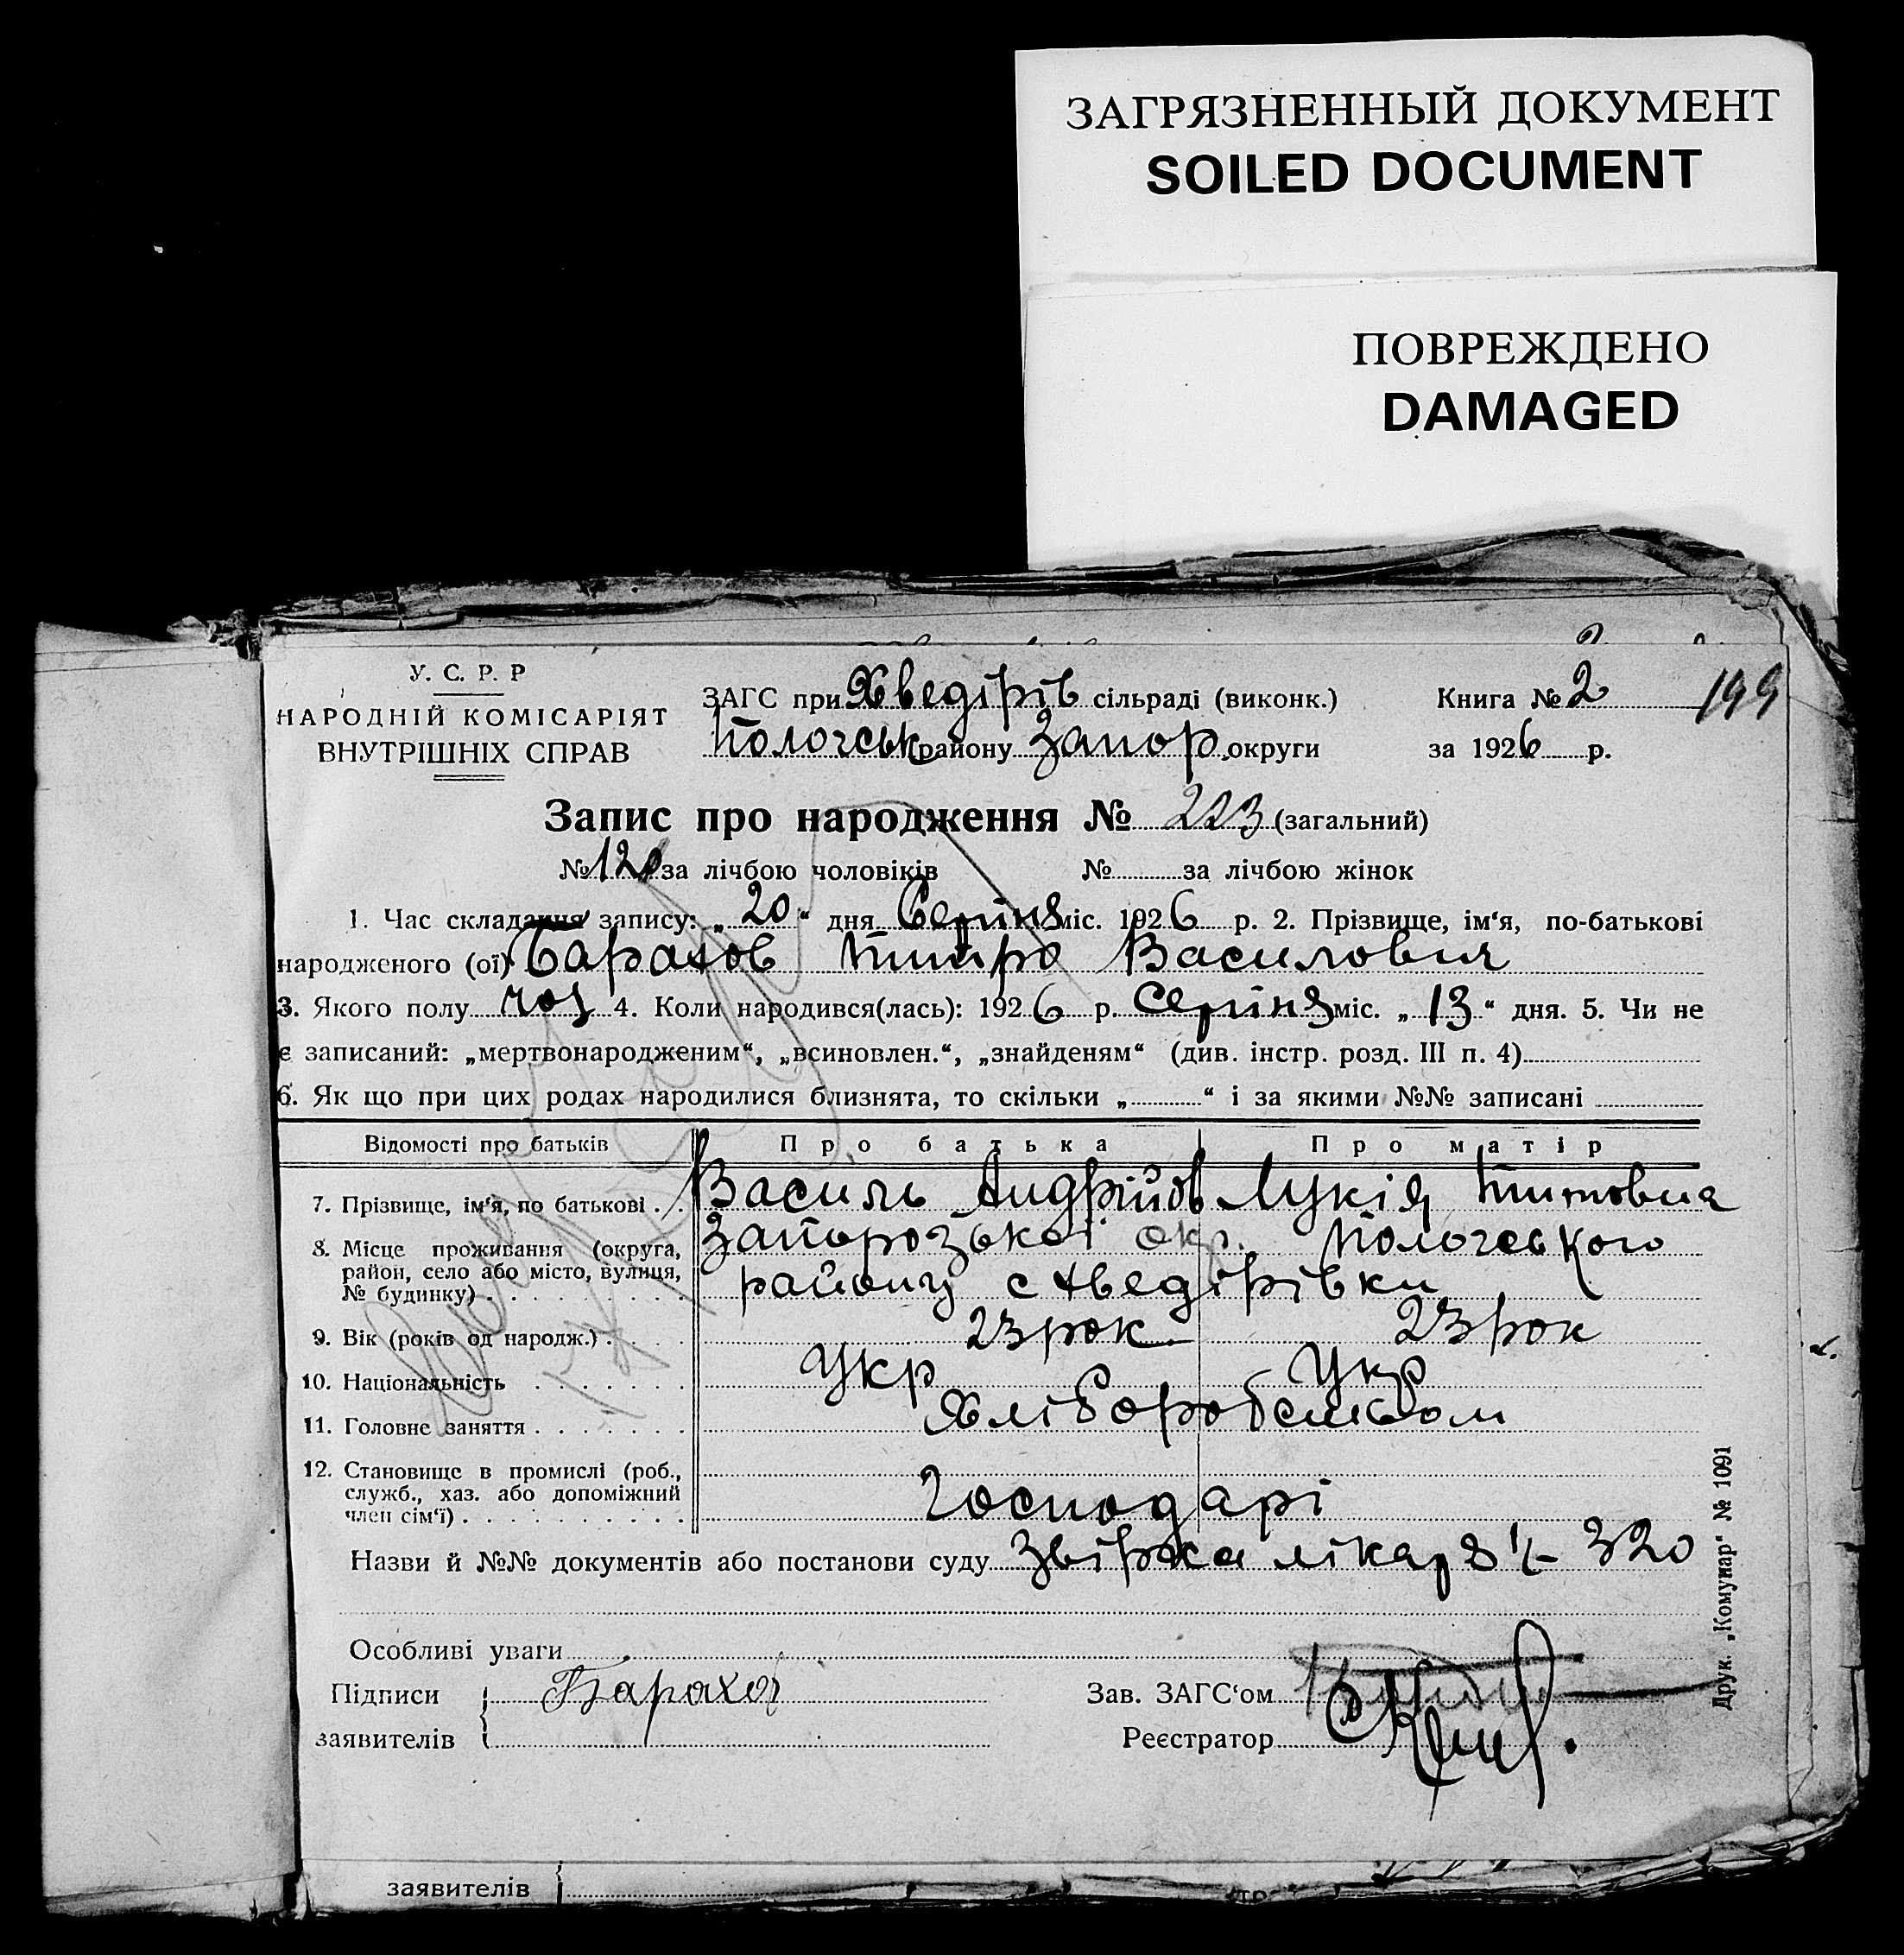 ЗАГРЯЗНЕННЫЙ ДОКУМЕНТ
SOILED DOCUMENT
ПОВРЕЖДЕНО
DAMAGED
У. С. Р. Р
НАРОДНІЙ КОМІСАРІЯТ
ВНУТРІШНІХ СПРАВ
ЗАГС при Хведірів сільраді (виконк.)
Пологськ району Запор. округи
Книга № 2
199
за 1926 р.
Запис про народження № 223 (загальний)
№ 120 за лічбою чоловіків № за лічбою жінок
1. Час складання запису: „20“ дня Серпня міс. 1926 р. 2. Прізвище, ім‘я, по-батькові
народженого (ої) Барахов Василович
3. Якого полу чол 4. Коли народився(лась): 1926 р. Серпня міс. „13“ дня. 5. Чи не
є записаний: „мертвонародженим“, „всиновлен.“, „знайденям“ (див. інстр. розд. III п. 4)
6. Як що при цих родах народилися близнята, то скільки „ “ і за якими №№ записані
Відомості про батьків Про батька Про матір
7. Прізвище, ім‘я, по батькові . . Василь Андрійов Лукія Титовна
8. Місце проживання (округа,
район, село або місто, вулиця,
№ будинку) . . . . . . . . .
Запорозької окр. Пологського
району с Хведірівки
9. Вік (років од народж.) . . . . 23 рок 23 рок
10. Національність . . . . . . . Укр Укр
11. Головне заняття . . . . . . . Хліборобством
12. Становище в промислі (роб.,
служб., хаз. або допоміжний
член сім‘ї) . . . . . . . . . .
Господарі
Назви й №№ документів або постанови суду лікаря 320
Особливі уваги
Підписи
заявителів
Барахов
Зав. ЗАГС‘ом
Реєстратор
Друк. „Комунар“ № 1091
заявителів